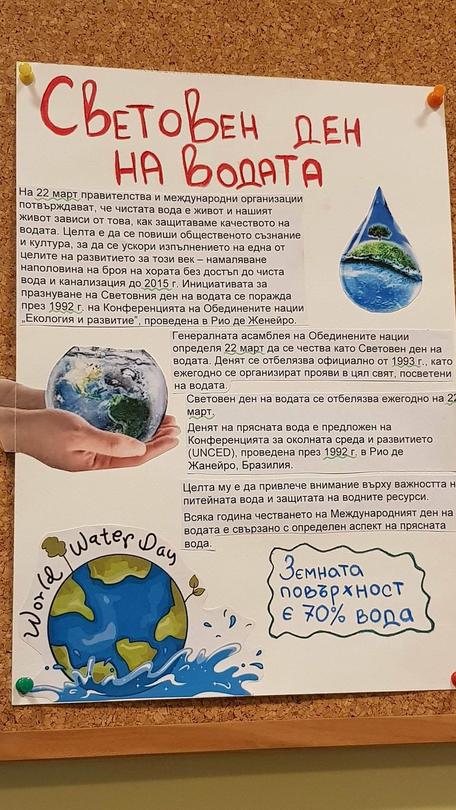 СВЕТОВЕН ДЕН
НА ВОДАТА
На 22 март правителства и международни организации
потвърждават, че чистата вода е живот и нашият
живот зависи от това, как защитаваме качеството на
водата. Целта е да се повиши общественото съзнание
и култура, за да се ускори изпълнението на една от
целите на развитието за този век – намаляване
наполовина на броя на хората без достъп до чиста
вода и канализация до 2015 г. Инициативата за
празнуване на Световния ден на водата се поражда
през 1992 г. на Конференцията на Обединените нации
„Екология и развитие”, проведена в Рио де Женейро.
Генералната асамблея на Обединените нации
определя 22 март да се чества като Световен ден на
водата. Денят се отбелязва официално от 1993 г., като
ежегодно се организират прояви в цял свят, посветени
на водата.
Световен ден на водата се отбелязва ежегодно на 22
март.
Денят на прясната вода е предложен на
Конференцията за околната среда и развитието
(UNCED), проведена през 1992 г. в Рио де
Жанейро, Бразилия.
Целта му е да привлече внимание върху важността н
питейната вода и защитата на водните ресурси.
Всяка година честването на Международният ден на
водата е свързано с определен аспект на прясната
вода.
World Water Day
Земната
повърхност
е 70% вода